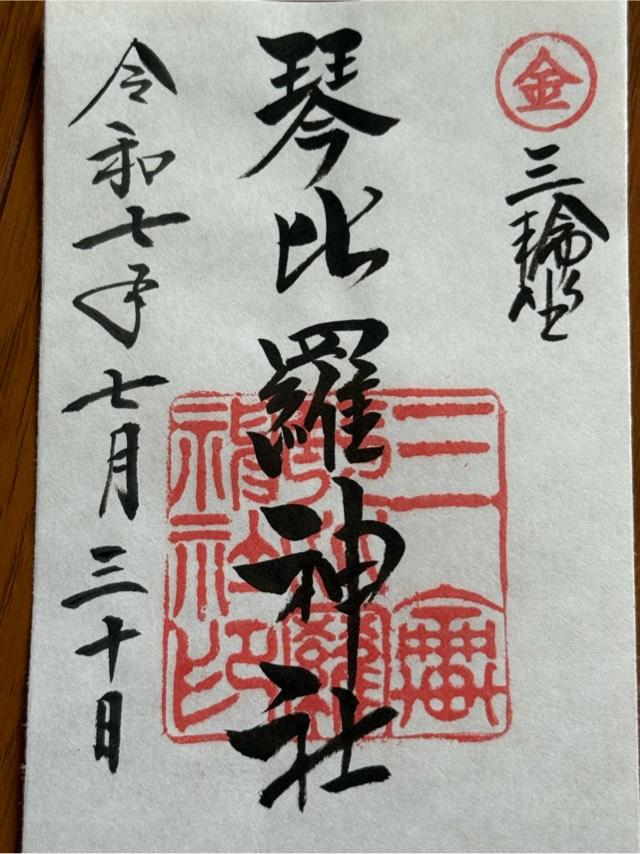 金
三輪坐
琴比羅神社
令和七年七月三十日
三輪
琴比羅
神社印